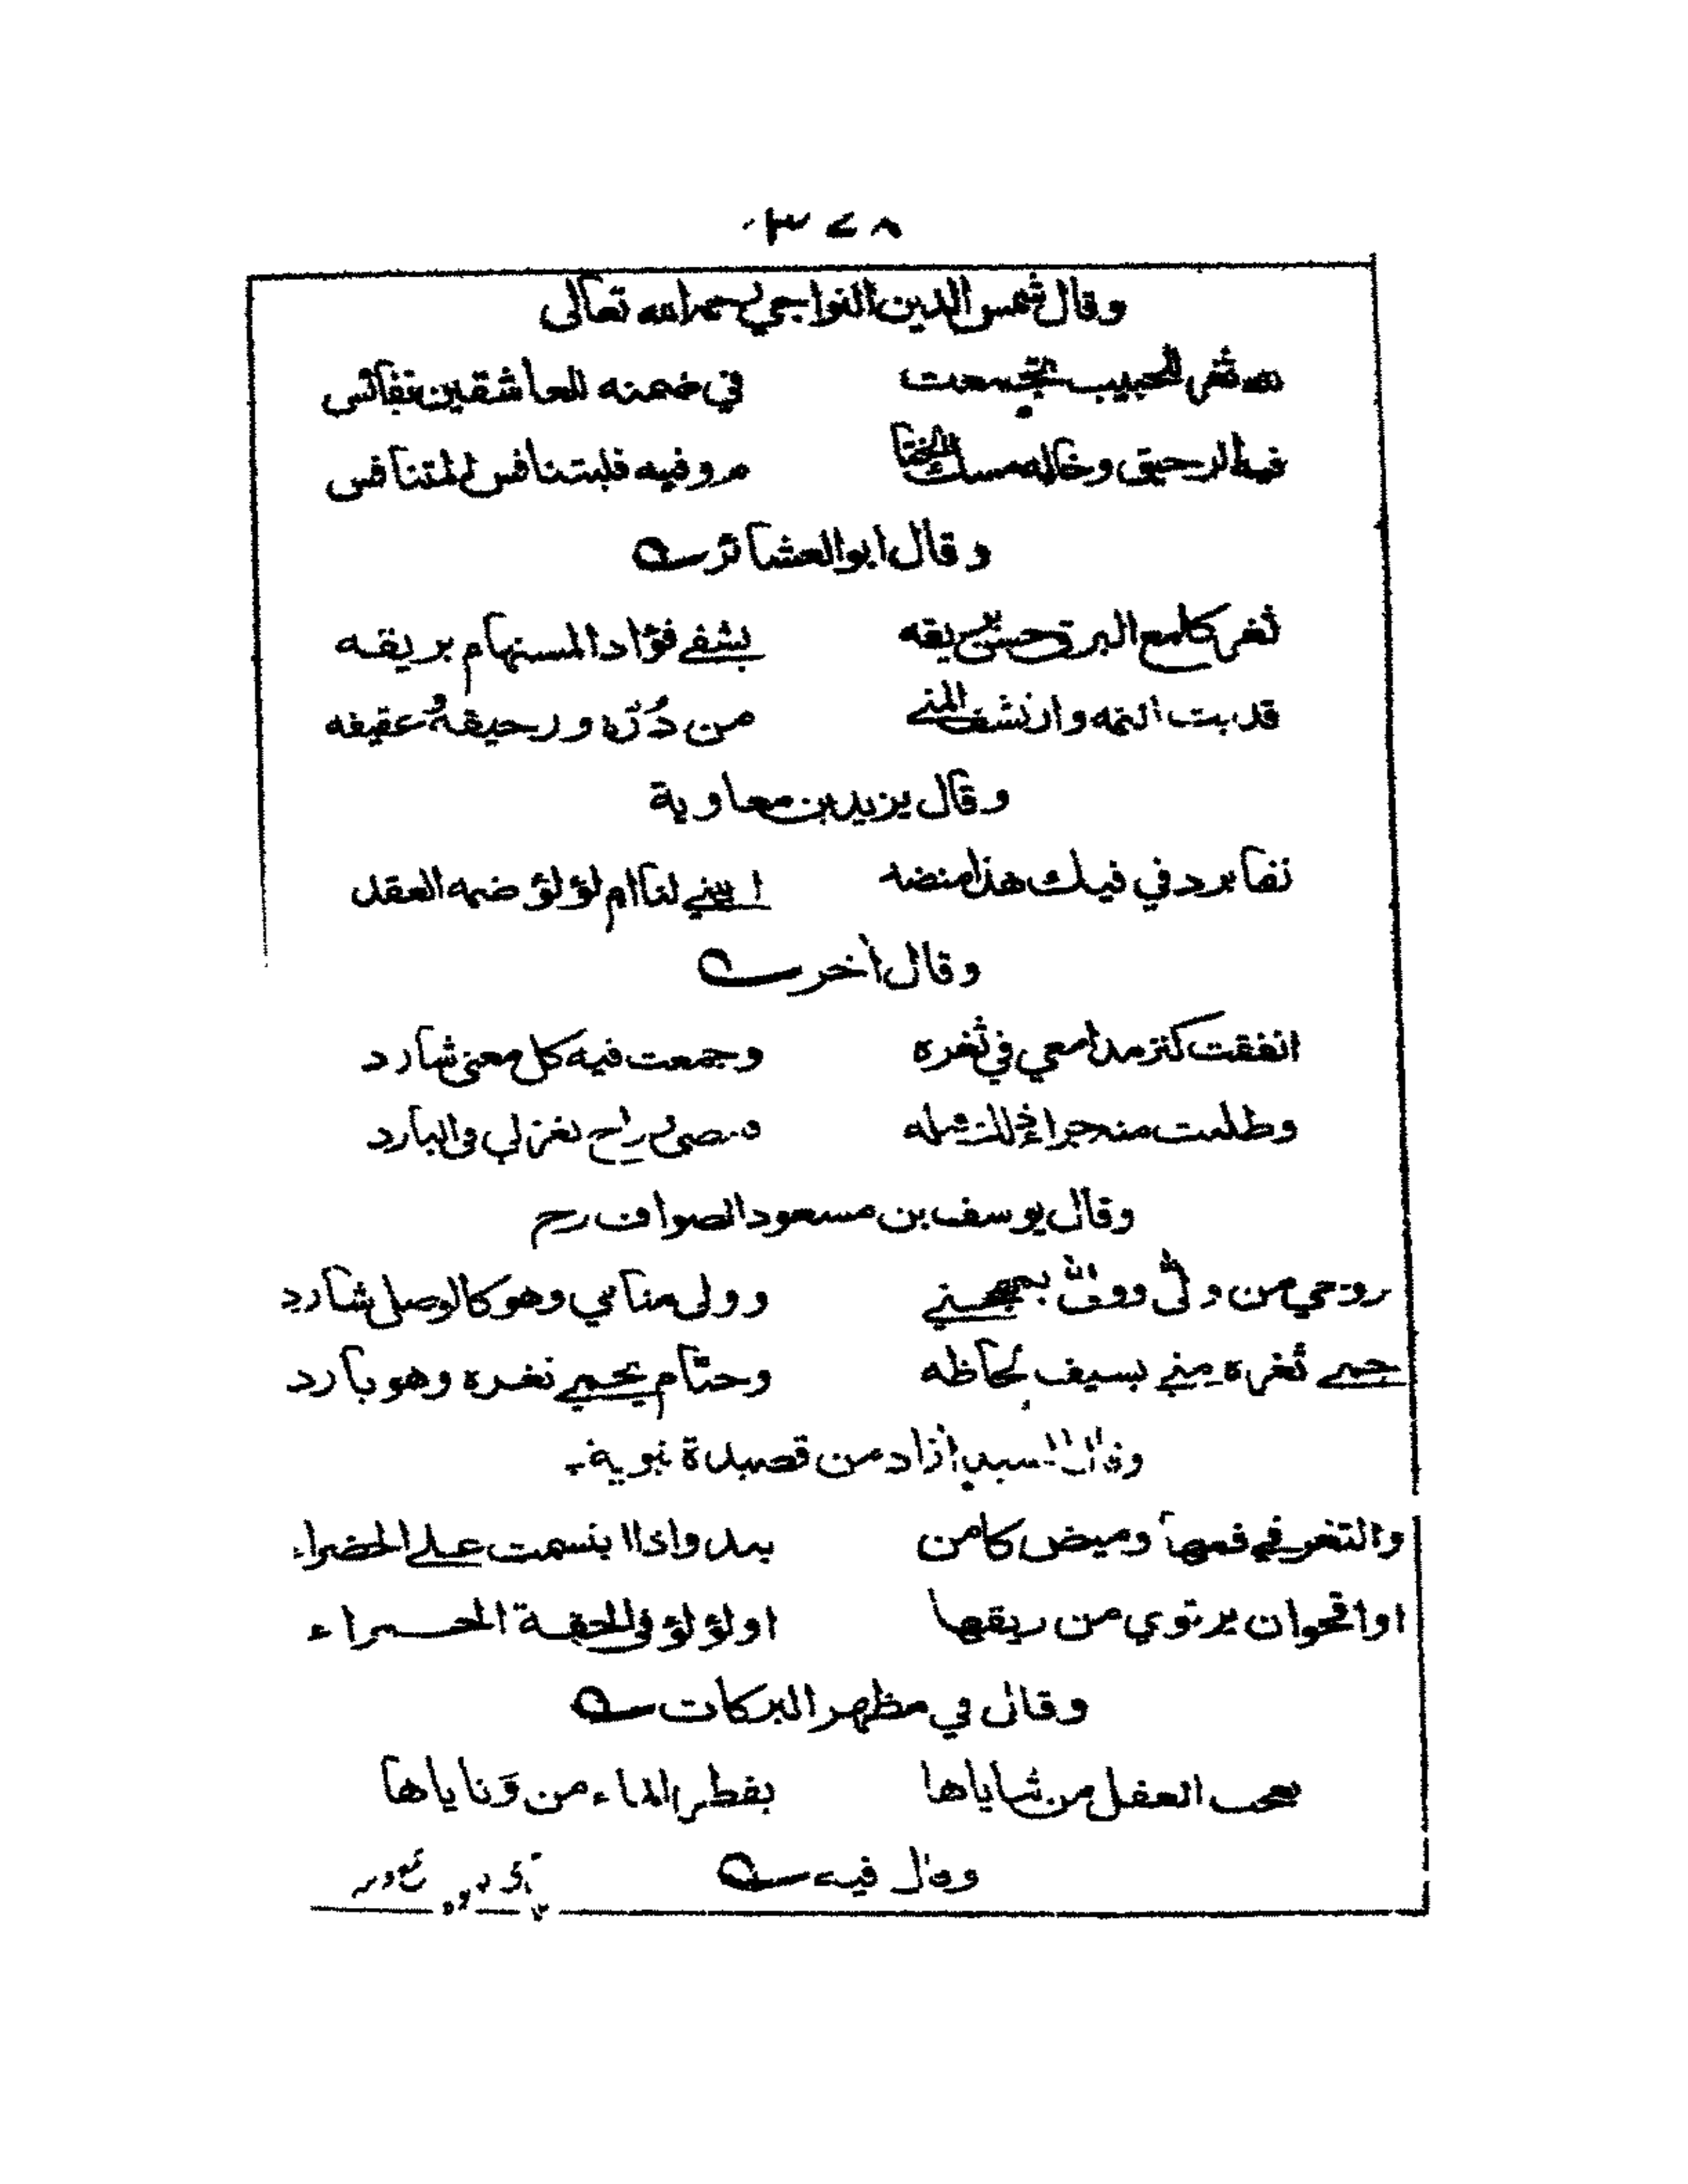 ٣٤٨
وقال شمس الدين النواجي رحمه الله تعالى
لله ثغر للحبيب تجمعت في ضمنه للعاشقين نفائس
فيه الرحيق وخاله مسك الختا م وفيه فليتنافس المتنافس
وقال ابو العشائر
ثغر كلامع البرق حسن بريقه يشفي فؤاد المستهام بريقه
قد بت الثمه وارتشف المنى من دُرّه ورحيقه وعقيقه
وقال يزيد بن معاوية
نقا برد في فيك هذا منضد ابيني لنا ام لؤلؤ ضمه العقد
وقال أخر
انفقت كنز مدامعي في ثغره وجمعت فيه كل معنى شارد
وطلبت منه جزاء ذلك قبله راح تغزلي في البارد
وقال يوسف بن مسعود الصواف رح
روحي من ولى وولى بمهجتي وولى منامي وهو كالوصل شارد
حمى ثغره مني بسيف لحاظه وحتّام يحمي ثغره وهو بارد
وقال السيد أزاد من قصيدة نبوية
والثغر في فمها وميض كامن يبدو اذا ابتسمت على الخضراء
او اقحوان يرتوي من ريقها او لؤلؤ في الحقة الحمراء
وقال في مظهر البركات
العقل من ثناياها بقطر الماء من وَناياها
وقال فيه